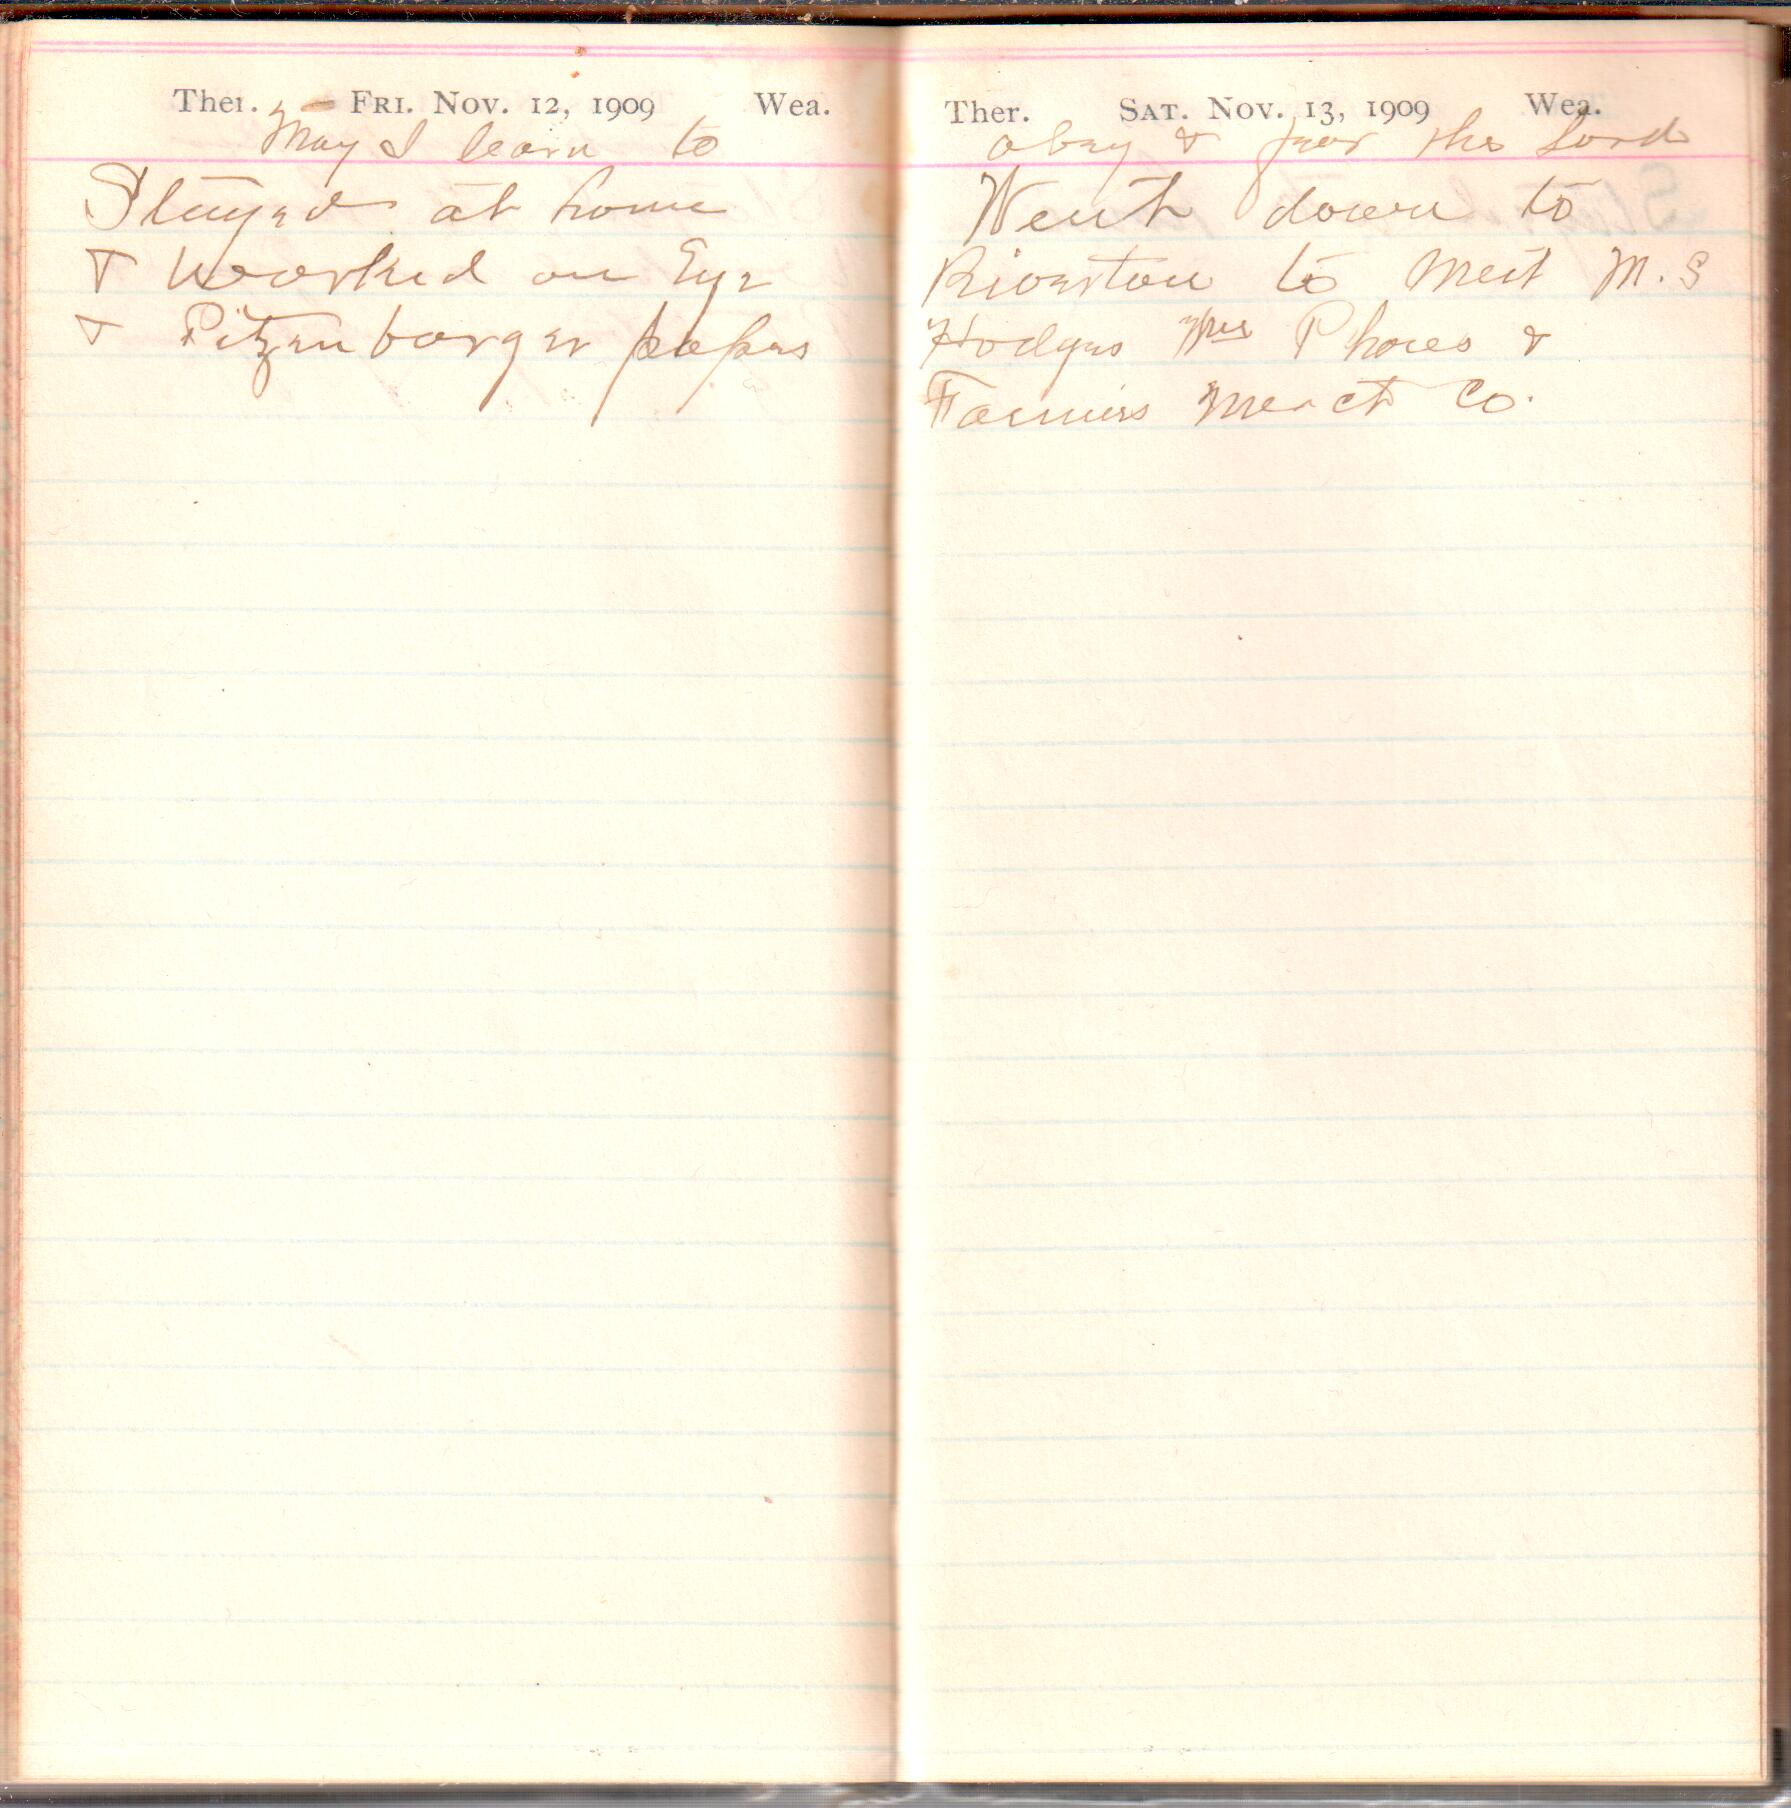 Ther. FRI. NOV. 12, 1909 Wea.
May I learn to
Stayed at home
& worked on Eye
& Pitzenbarger papers
Ther. SAT. NOV. 13, 1909 Wea.
obey & fear the Lord
Went down to
Riverton to Meet M. S
Hodges Mrs &
Farmers Merct Co.